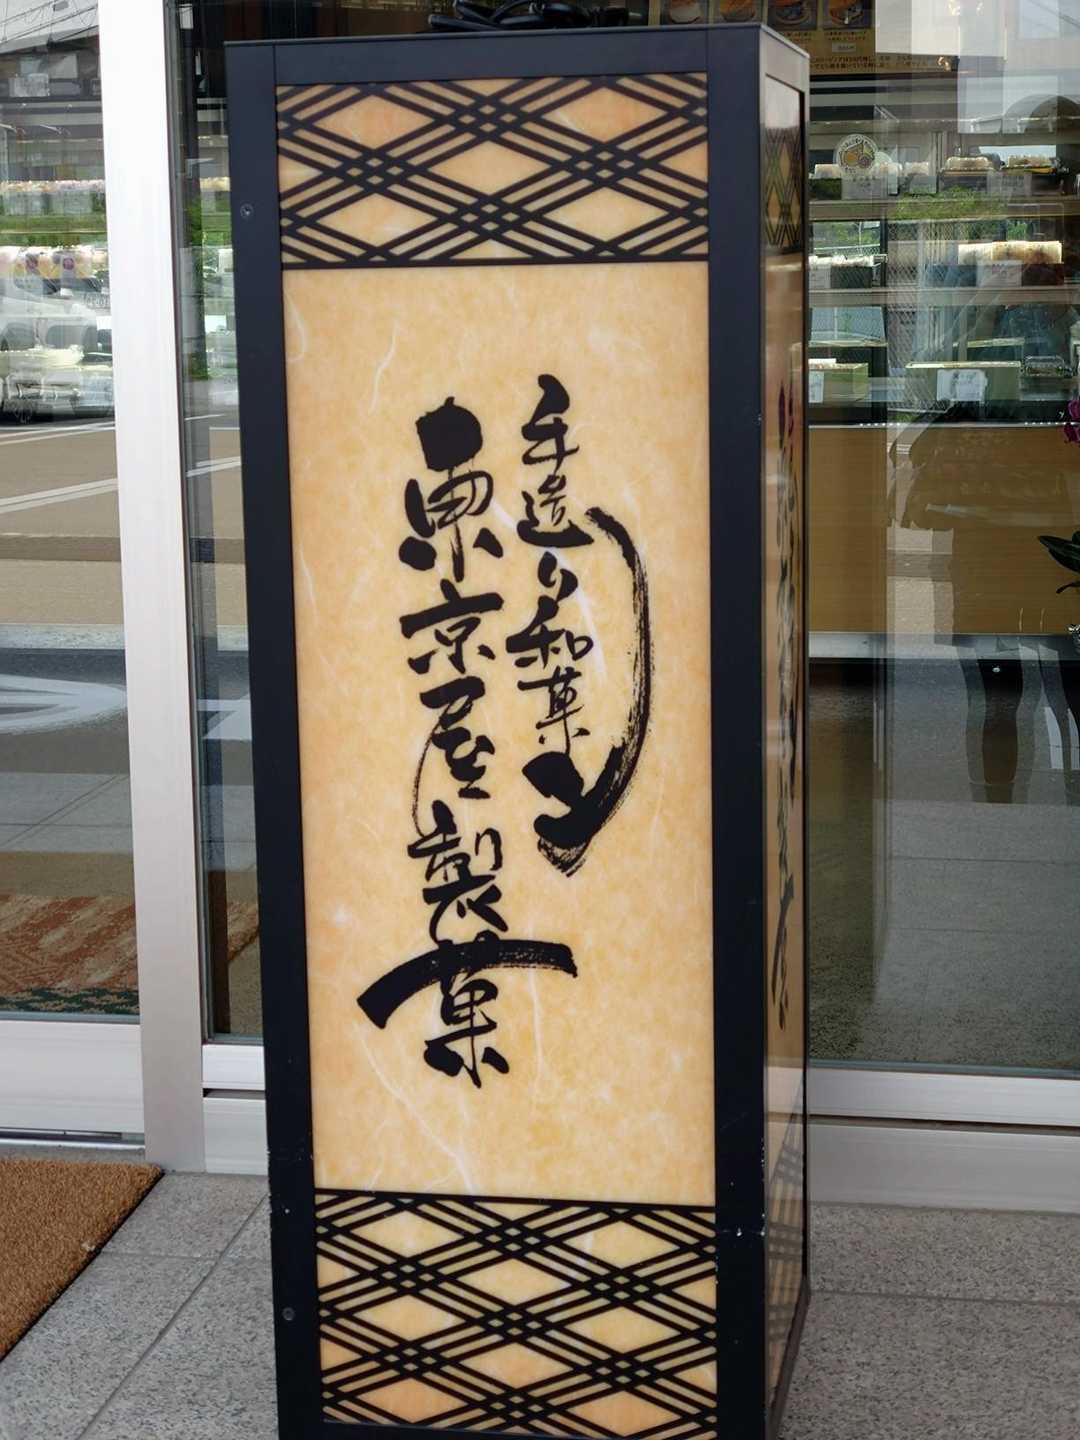 手造り和菓子
東京屋製菓